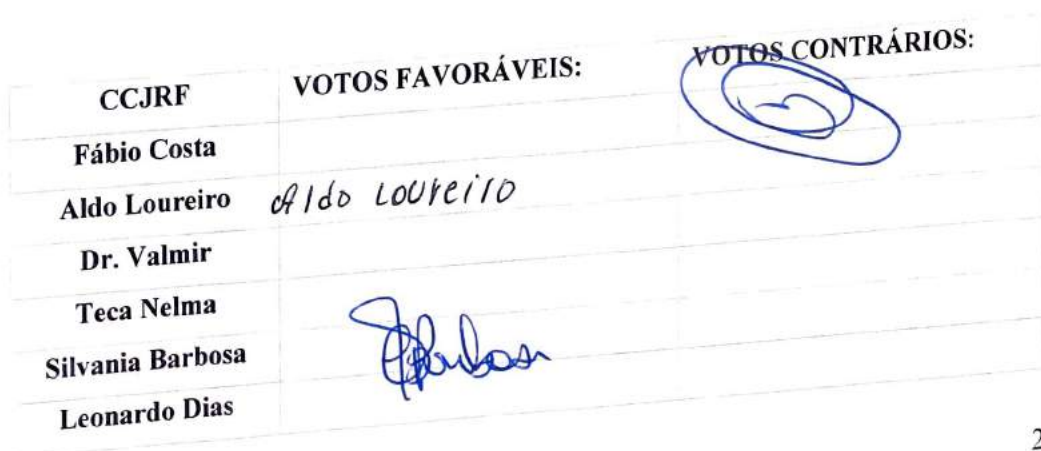 CCJRF VOTOS FAVORÁVEIS: VOTOS CONTRÁRIOS:
Fábio Costa
Aldo Loureiro Aldo Loureiro
Dr. Valmir
Teca Nelma
Silvania Barbosa Barbosa
Leonardo Dias
2